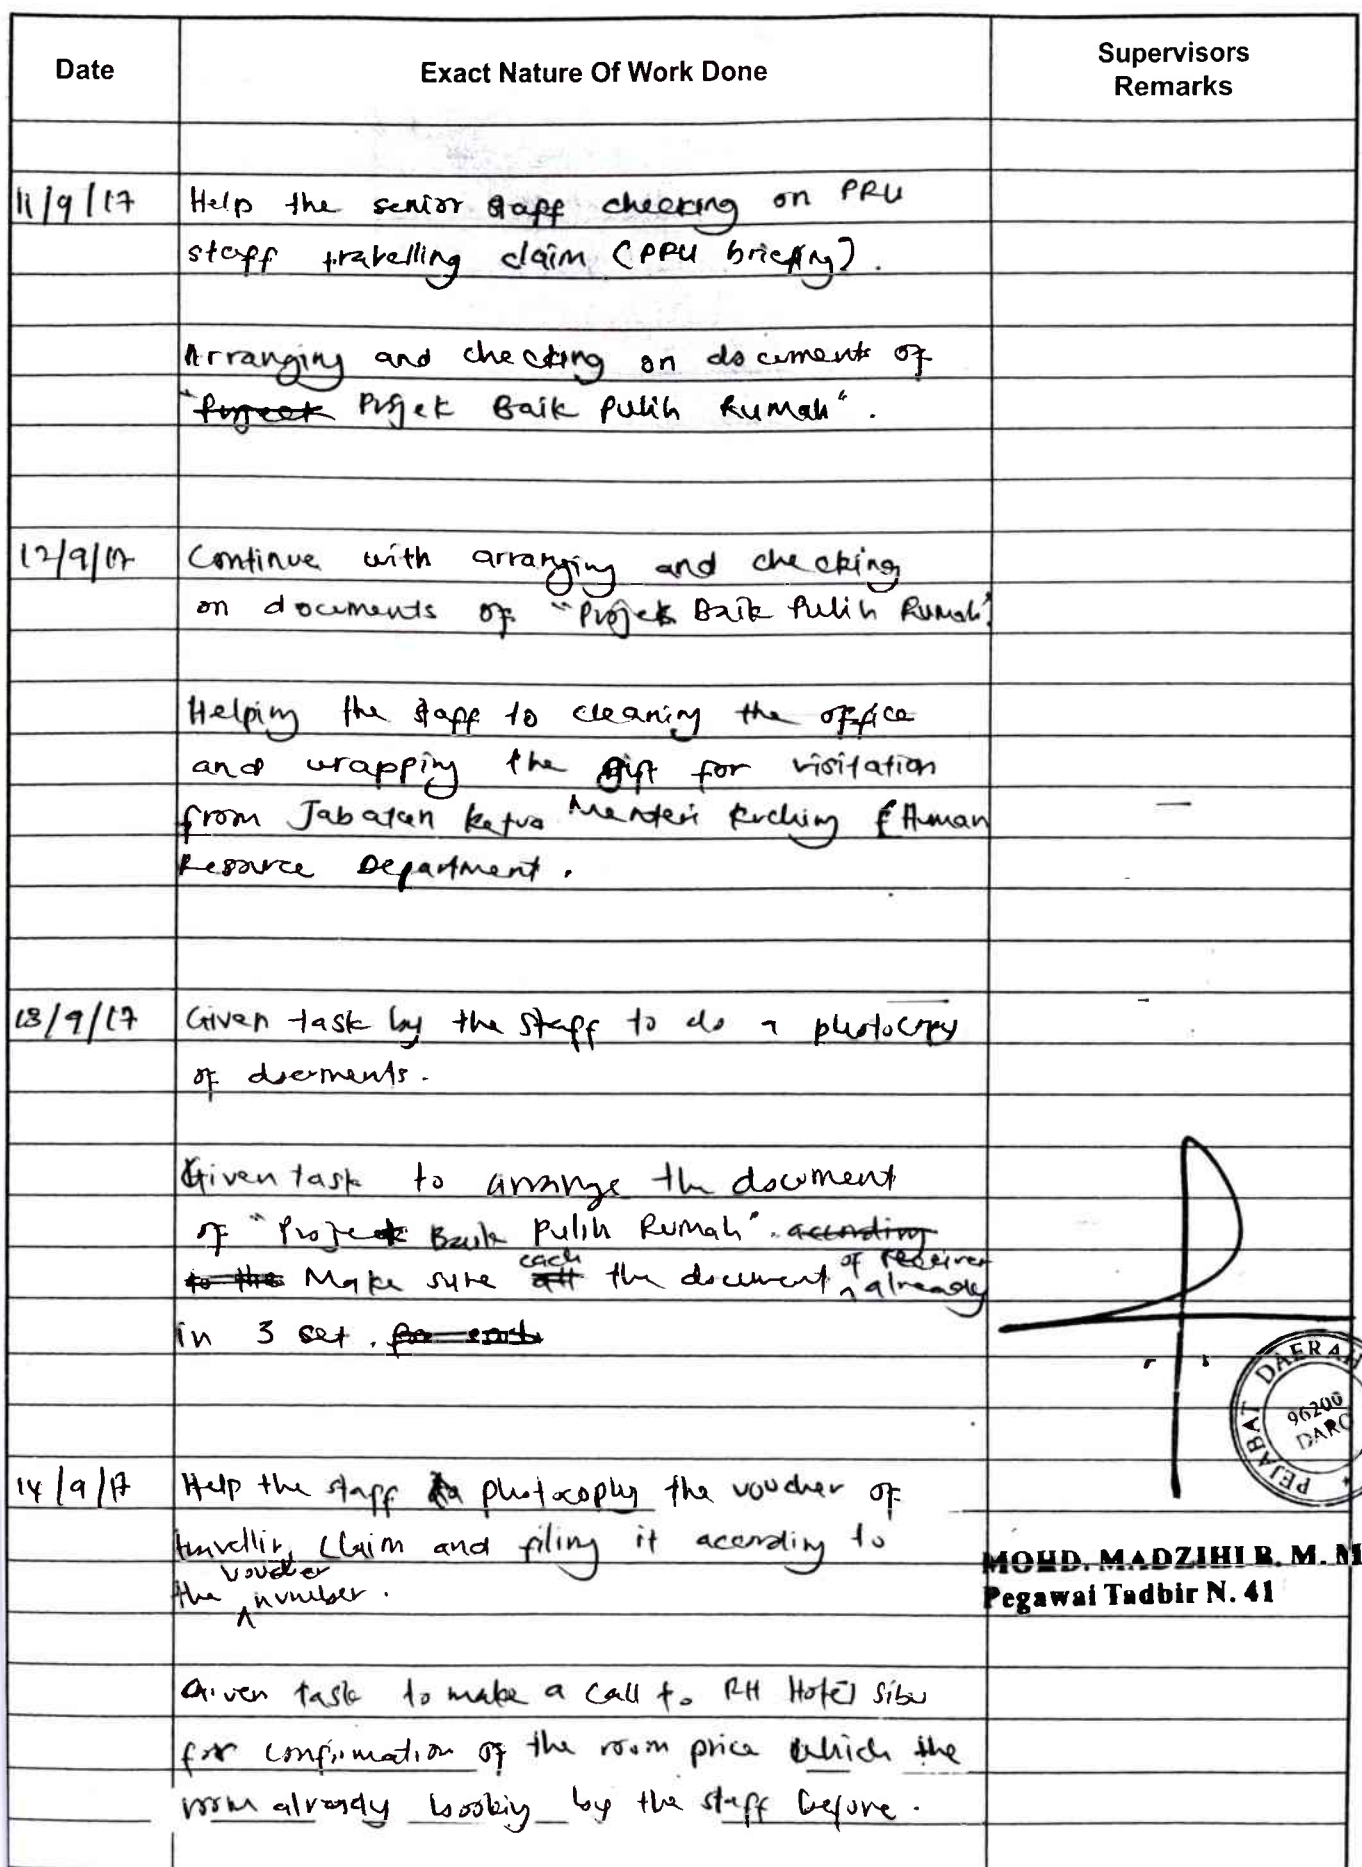 Date
Exact Nature Of Work Done
Supervisors
Remarks
11/9/17
Help the senior staff checking on PRU
staff travelling claim (PPRU briefing).
Arranging and checking on documents of
"Project Projek Baik Pulih Rumah".
12/9/17
Continue with arranging and checking
on documents of "Projek Baik Pulih Rumah".
Helping the staff to cleaning the office
and wrapping the gift for visitation
from Jabatan Ketua Menteri Kuching & Human
Resource Department.
13/9/17
Given task by the staff to do a photocopy
of documents.
Given task to arrange the document
of "Projek Baik Pulih Rumah". according
to the Make sure all each the document of receiver already
in 3 set. for each
PEJABAT DAERAH
96200
DARO
14/9/17
Help the staff photocophy the voucher of
travelling claim and filing it according to
the voucher number.
MOHD. MADZIHI B. M. M
Pegawai Tadbir N. 41
Given task to make a call to RH Hotel Sibu
for confirmation of the room price which the
room already booking by the staff before.